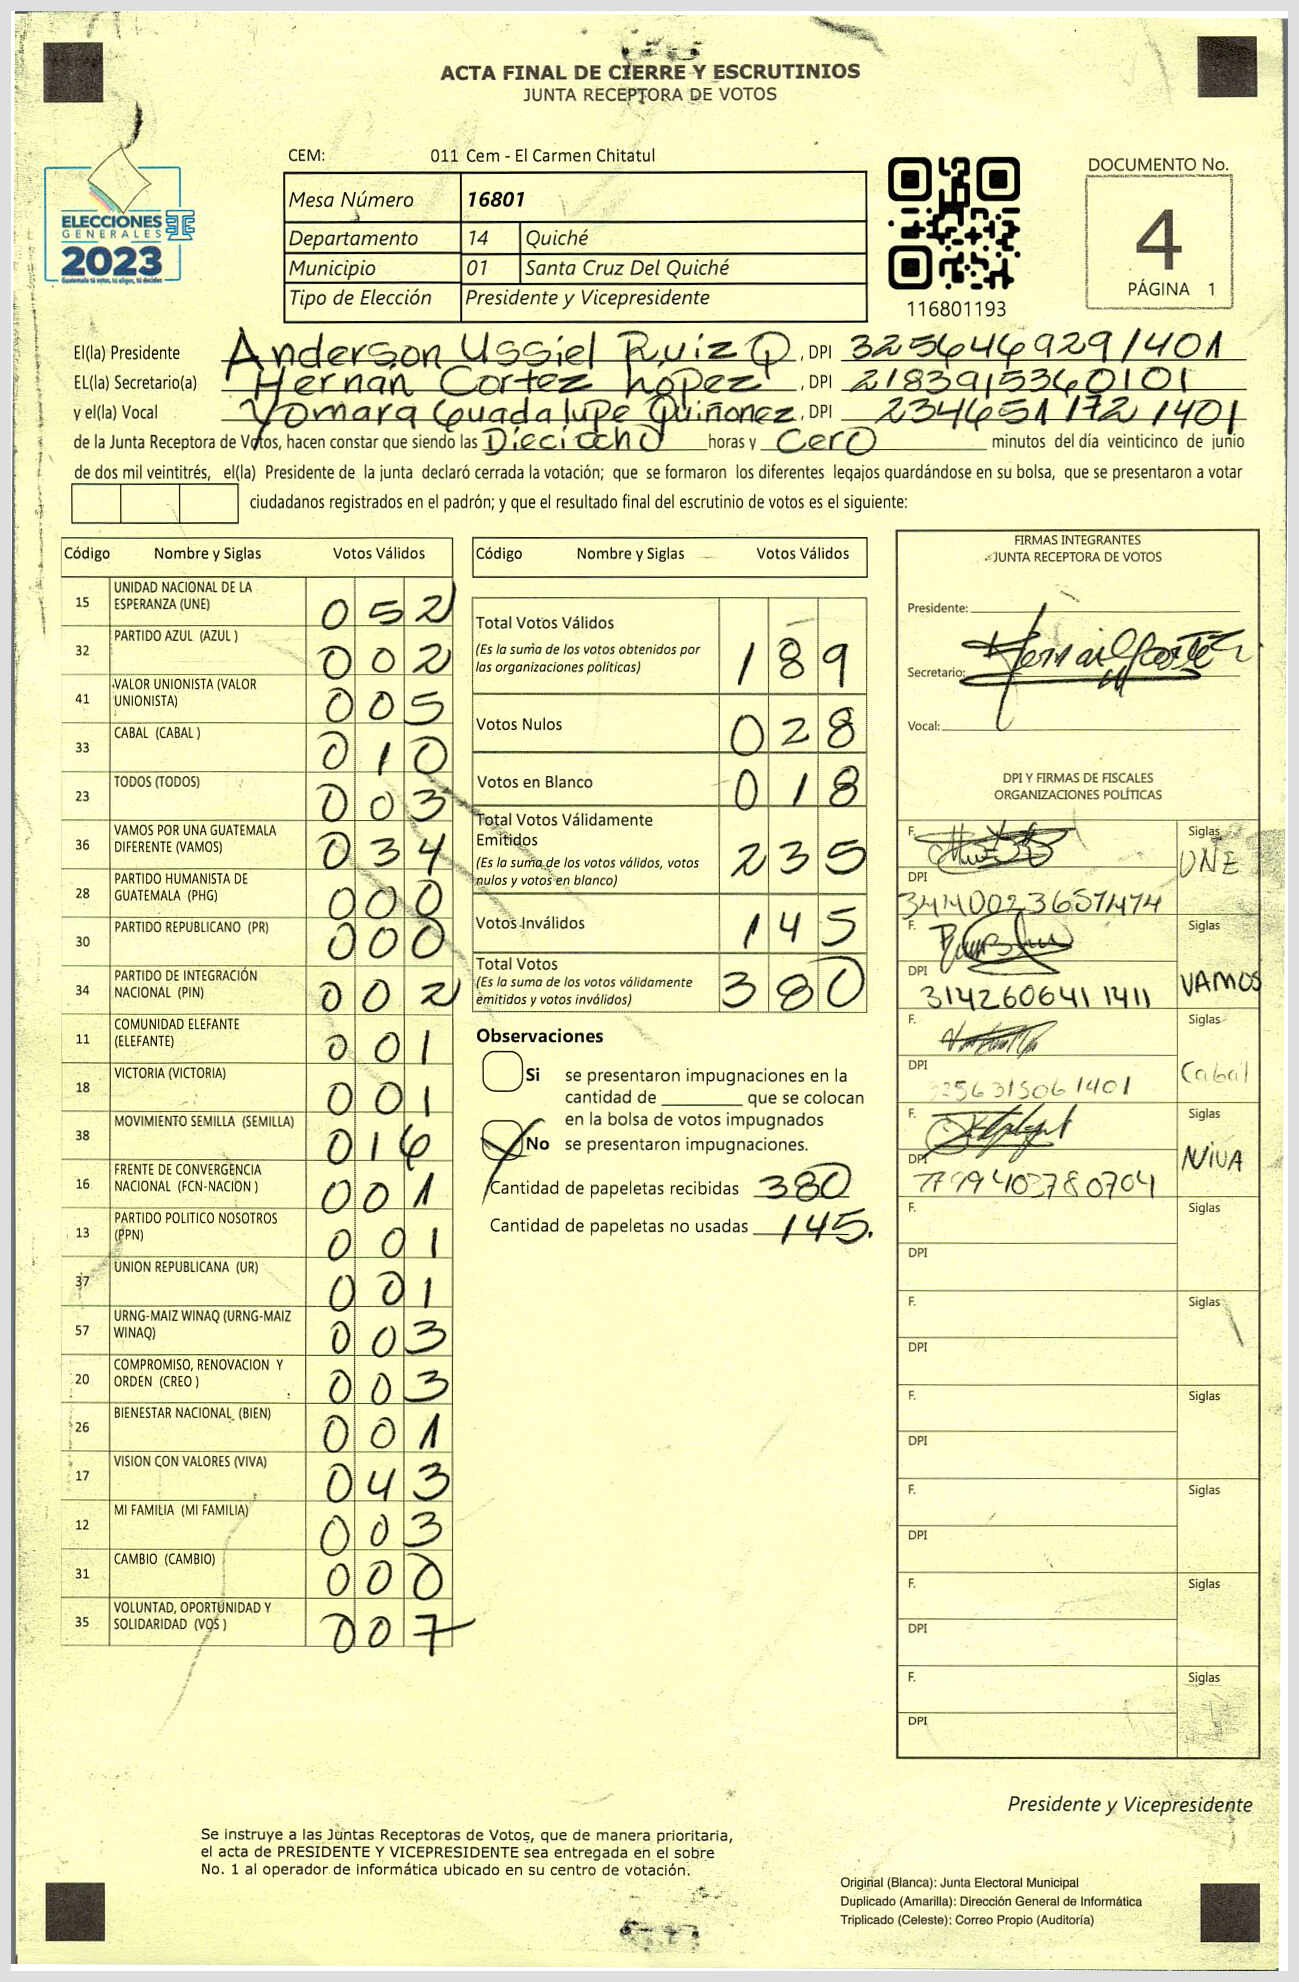 ACTA FINAL DE CIERRE Y ESCRUTINIOS
JUNTA RECEPTORA DE VOTOS
CEM: 011 Cem - El Carmen Chitatul
Mesa Número 16801
Departamento 14 Quiché
Municipio 01 Santa Cruz Del Quiché
Tipo de Elección Presidente y Vicepresidente
ELECCIONES
GENERALES
2023
Guatemala tú votas, tú eliges, tú decides
116801193
DOCUMENTO No.
4
PÁGINA 1
El(la) Presidente Anderson Ussiel Ruiz Q, DPI 3256469291401
EL(la) Secretario(a) Hernán Cortez López, DPI 2183915360101
y el(la) Vocal Yomara Guadalupe Quiñonez, DPI 2346511721401
de la Junta Receptora de Votos, hacen constar que siendo las Dieciocho horas y Cero minutos del día veinticinco de junio
de dos mil veintitrés, el(la) Presidente de la junta declaró cerrada la votación; que se formaron los diferentes legajos quardándose en su bolsa, que se presentaron a votar
ciudadanos registrados en el padrón; y que el resultado final del escrutinio de votos es el siguiente:
Código Nombre y Siglas Votos Válidos
15 UNIDAD NACIONAL DE LA ESPERANZA (UNE) 052
32 PARTIDO AZUL (AZUL ) 002
41 VALOR UNIONISTA (VALOR UNIONISTA) 005
33 CABAL (CABAL ) 010
23 TODOS (TODOS) 003
36 VAMOS POR UNA GUATEMALA DIFERENTE (VAMOS) 034
28 PARTIDO HUMANISTA DE GUATEMALA (PHG) 000
30 PARTIDO REPUBLICANO (PR) 000
34 PARTIDO DE INTEGRACIÓN NACIONAL (PIN) 002
11 COMUNIDAD ELEFANTE (ELEFANTE) 001
18 VICTORIA (VICTORIA) 001
38 MOVIMIENTO SEMILLA (SEMILLA) 016
16 FRENTE DE CONVERGENCIA NACIONAL (FCN-NACION ) 001
13 PARTIDO POLITICO NOSOTROS (PPN) 001
37 UNION REPUBLICANA (UR) 001
57 URNG-MAIZ WINAQ (URNG-MAIZ WINAQ) 003
20 COMPROMISO, RENOVACION Y ORDEN (CREO ) 003
26 BIENESTAR NACIONAL (BIEN) 001
17 VISION CON VALORES (VIVA) 043
12 MI FAMILIA (MI FAMILIA) 003
31 CAMBIO (CAMBIO) 000
35 VOLUNTAD, OPORTUNIDAD Y SOLIDARIDAD (VOS ) 007
Código Nombre y Siglas Votos Válidos
Total Votos Válidos 189
(Es la suma de los votos obtenidos por
las organizaciones políticas)
Votos Nulos 028
Votos en Blanco 018
Total Votos Válidamente
Emitidos 235
(Es la suma de los votos válidos, votos
nulos y votos en blanco)
Votos Inválidos 145
Total Votos 380
(Es la suma de los votos válidamente
emitidos y votos inválidos)
Observaciones
Si se presentaron impugnaciones en la
cantidad de ________ que se colocan
en la bolsa de votos impugnados
No se presentaron impugnaciones.
Cantidad de papeletas recibidas 380
Cantidad de papeletas no usadas 145.
FIRMAS INTEGRANTES
JUNTA RECEPTORA DE VOTOS
Presidente:
Secretario:
Vocal:
DPI Y FIRMAS DE FISCALES
ORGANIZACIONES POLÍTICAS
F. Siglas UNE
DPI
F. Siglas VAMOS
DPI 3142606411411
F. Siglas Cabal
DPI
F. VIVA
DPI
F. Siglas
DPI
F. Siglas
DPI
F. Siglas
DPI
F. Siglas
DPI
F. Siglas
DPI
F. Siglas
DPI
Presidente y Vicepresidente
Se instruye a las Juntas Receptoras de Votos, que de manera prioritaria,
el acta de PRESIDENTE Y VICEPRESIDENTE sea entregada en el sobre
No. 1 al operador de informática ubicado en su centro de votación.
Original (Blanca): Junta Electoral Municipal
Duplicado (Amarilla): Dirección General de Informática
Triplicado (Celeste): Correo Propio (Auditoría)